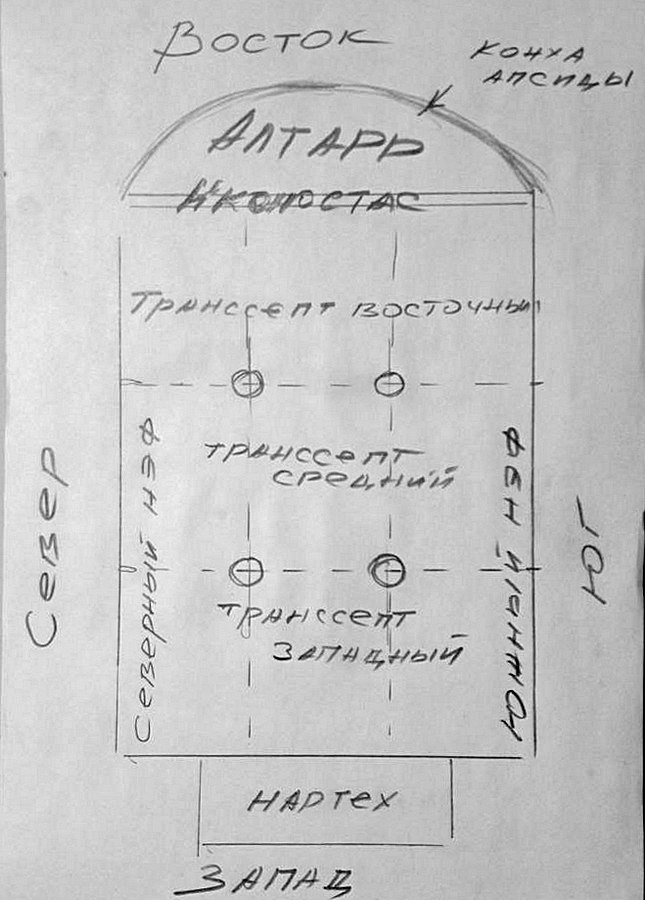 Восток
конха
апсиды
Алтарь
Иконостас
Транссепт восточный
транссепт
средний
Северный нэф
Южный нэф
Север
Юг
транссепт
западный
нартех
Запад